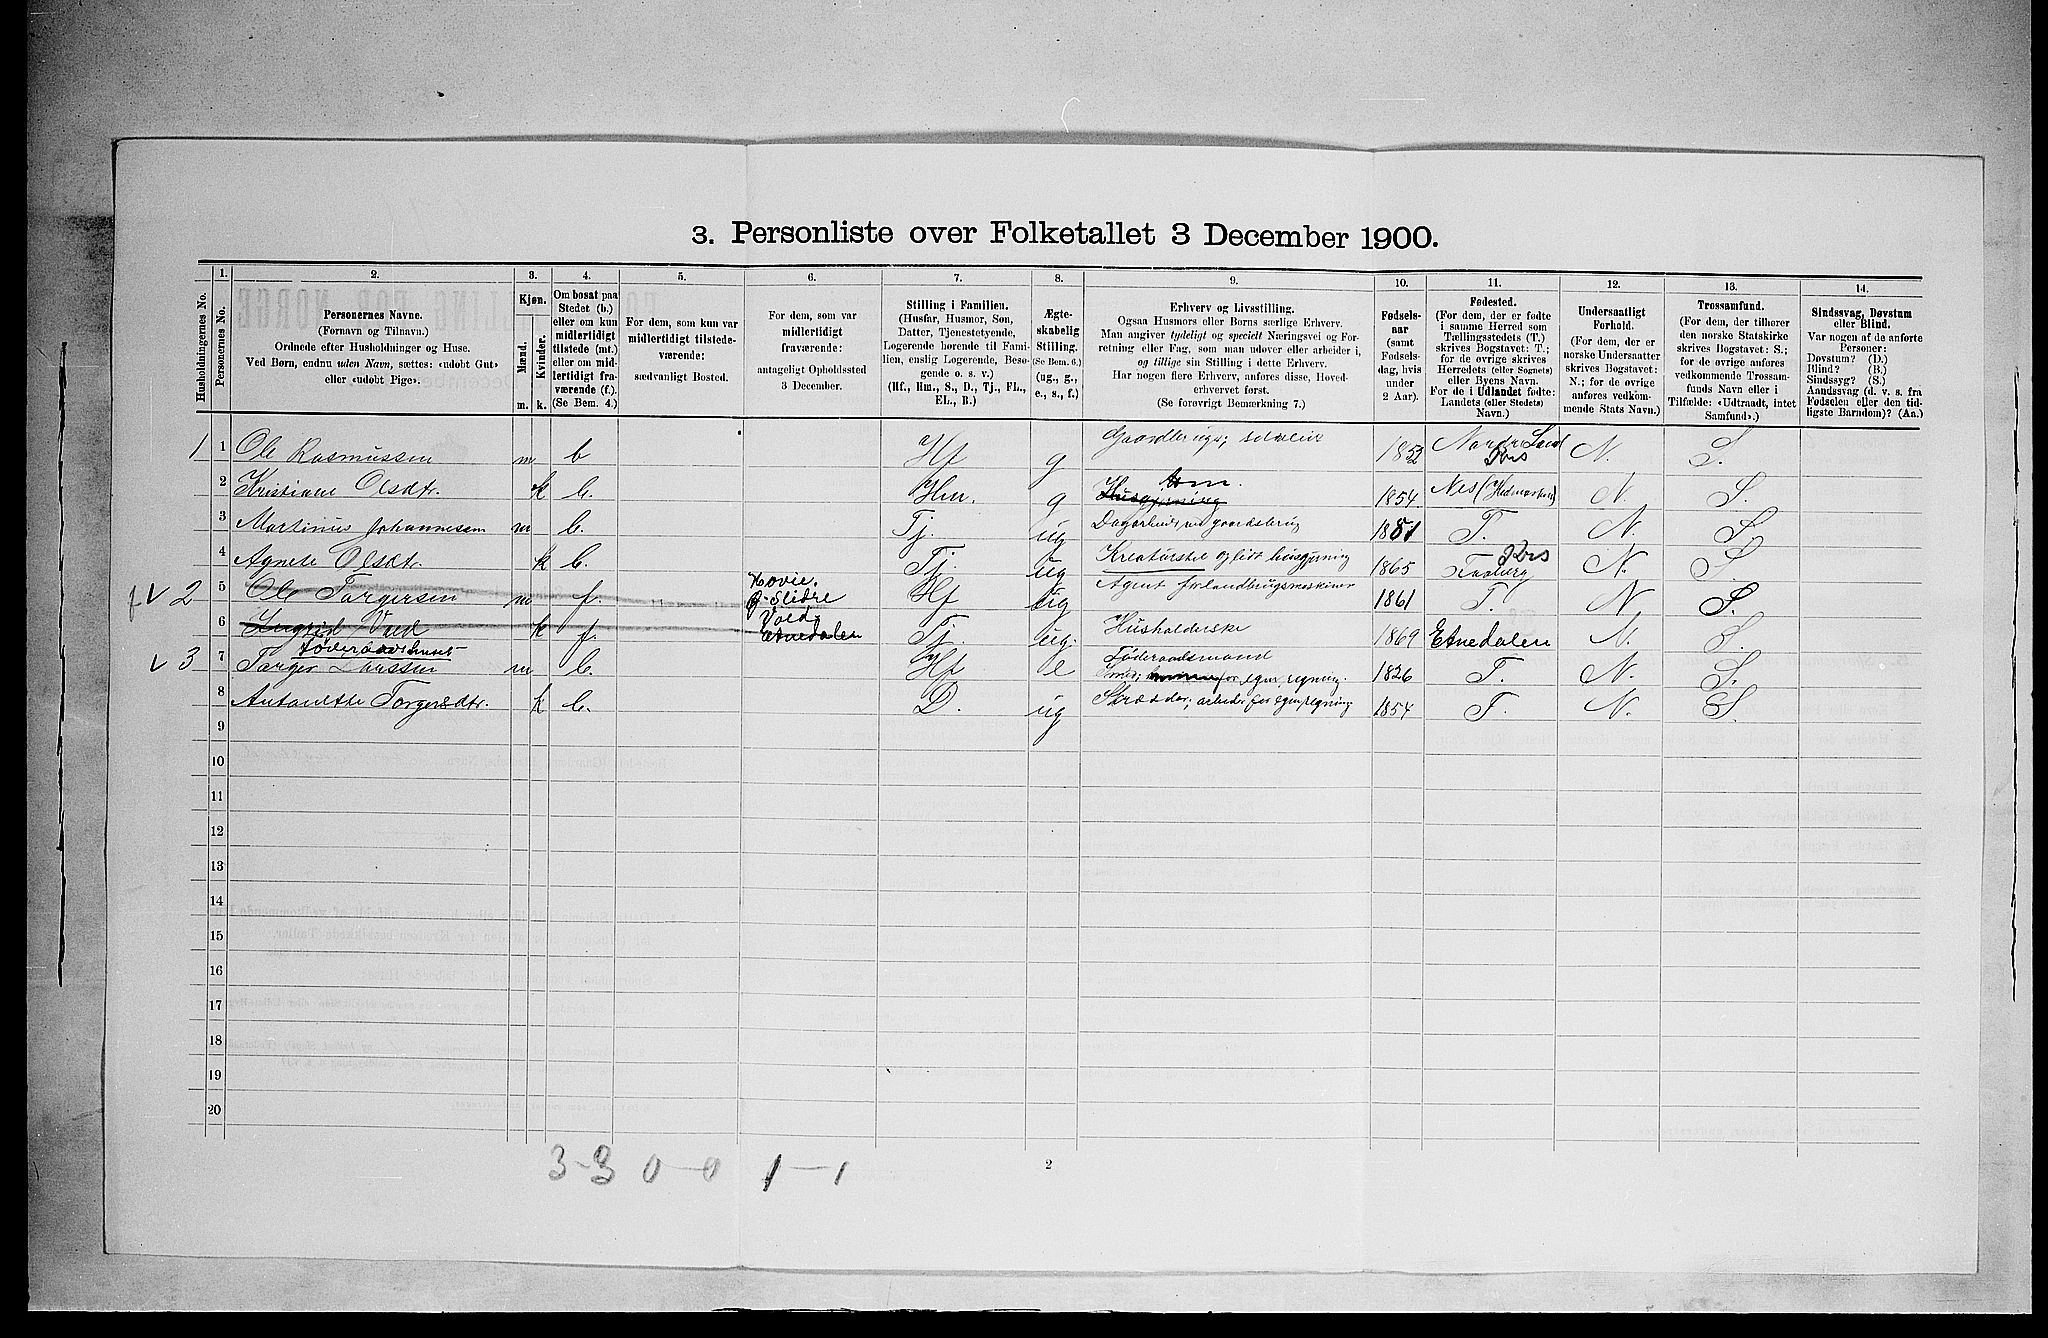 3. Personliste over Folketallet 3 December 1900.
Husholdningernes No.
1.
Personernes No.
2.
Personernes Navne.
(Fornavn og Tilnavn.)
Ordnede efter Husholdninger og Huse.
Ved Børn, endnu uden Navn, sættes: «udobt Gut»
eller «udobt Pige».
3.
Kjøn.
Mænd.
Kvinder.
m. k.
4.
Om bosat paa
Stedet (b.)
eller om kun
midlertidigt
tilstede (mt.)
eller om mid-
lertidigt fra-
værende (f.).
(Se Bem. 4.)
5.
For dem, som kun var
midlertidigt tilstede-
værende:
sædvanligt Bosted.
6.
For dem, som var
midlertidigt
fraværende:
antageligt Opholdssted
3 December.
7.
Stilling i Familien.
(Husfar, Husmor, Søn,
Datter, Tjenestetyende,
Logerende hørende til Fami-
lien, enslig Logerende, Besø-
gende o. s. v.)
(Hf., Hm., S., D., Tj., FL.,
EL., B.)
8.
Ægte-
skabelig
Stilling.
(Se Bem. 6.)
(ug., g.,
e., s., f.)
9.
Erhverv og Livsstilling.
Ogsaa Husmors eller Børns særlige Erhverv.
Man angiver tydeligt og specielt Næringsvei og For-
retning eller Fag, som man udøver eller arbeider i,
og tillige sin Stilling i dette Erhverv.
Har nogen flere Erhverv, anføres disse, Hoved-
erhvervet først.
(Se forøvrigt Bemærkning 7.)
10.
Fødsels-
aar
(samt
Fødsels-
dag, hvis
under
2 Aar).
11.
Fødested.
(For dem, der er fødte
i samme Herred som
Tællingsstedets (T.)
skrives Bogstavet: T.;
for de øvrige skrives
Herredets (eller Sognets)
eller Byens Navn.
For de i Udlandet fødte:
Landets (eller Stedets)
Navn.)
12.
Undersaatligt
Forhold.
(For dem, der er
norske Undersaatter
skrives Bogstavet:
N.; for de øvrige
anføres vedkom-
mende Stats Navn.)
13.
Trossamfund.
(For dem, der tilhører
den norske Statskirke
skrives Bogstavet: S.;
for de øvrige anføres
vedkommende Trossam-
funds Navn eller i
Tilfælde: «Udtraadt, intet
Samfund».)
14.
Sindssvag, Døvstum
eller Blind.
Var nogen af de anførte
Personer:
Døvstum? (D.)
Blind? (B.)
Sindssyg? (S.)
Aandssvag (d. v. s. fra
Fødselen eller den tid-
ligste Barndom)? (Aa.)
1 1 Ole Rasmussen m b Hf g Gaardbruger, selveier 1852 Nordre Land N. S.
2 Kristiane Olsdtr. k b. Hm. g Husgjerning Hm. 1854 Nes (Hedmarken) N. S.
3 Martinus Johannessen m b. Tj. ug Dagarbeider ved gaardsbrug 1881 T. N. S.
4 Agnete Olsdtr. k b. Tj. ug Kreaturstel og lidt husgjerning 1865 Faaberg N. S.
2 5 Ole Torgersen m f. Hovie, Slidre Hf ug Agent for landbrugsmaskiner 1861 T. N. S.
6 Ingrid Vold k f. Vold, Etnedalen Tj. ug. Husholderske 1869 Etnedalen N. S.
Føderaadshuset
3 7 Torger Larssen m b. Hf e Føderaadsmand
for egen regning. 1826 T. N. S.
8 Antonette Torgersdtr. k b. D. ug Skrædder; arbeider for egen regning. 1854 T. N. S.
9
10
11
12
13
14
15
16
17
18
19
20
3-3 0-0 1-1
2